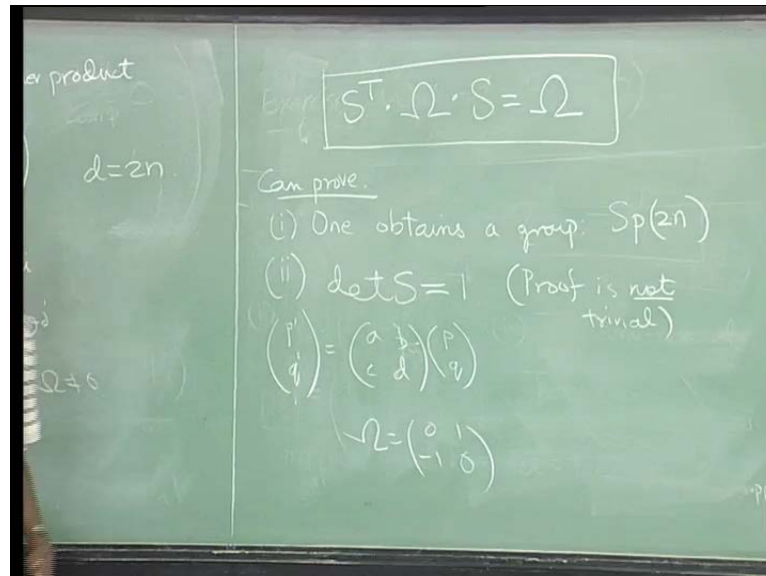 product
d=2n.
Ω≠0
Sᵀ·Ω·S=Ω
Can prove.
(i) One obtains a group: Sp(2n)
(ii) det S = 1 (Proof is not
trivial)
(p' q') = (a b c d)(p q)
Ω=(0 1 -1 0)